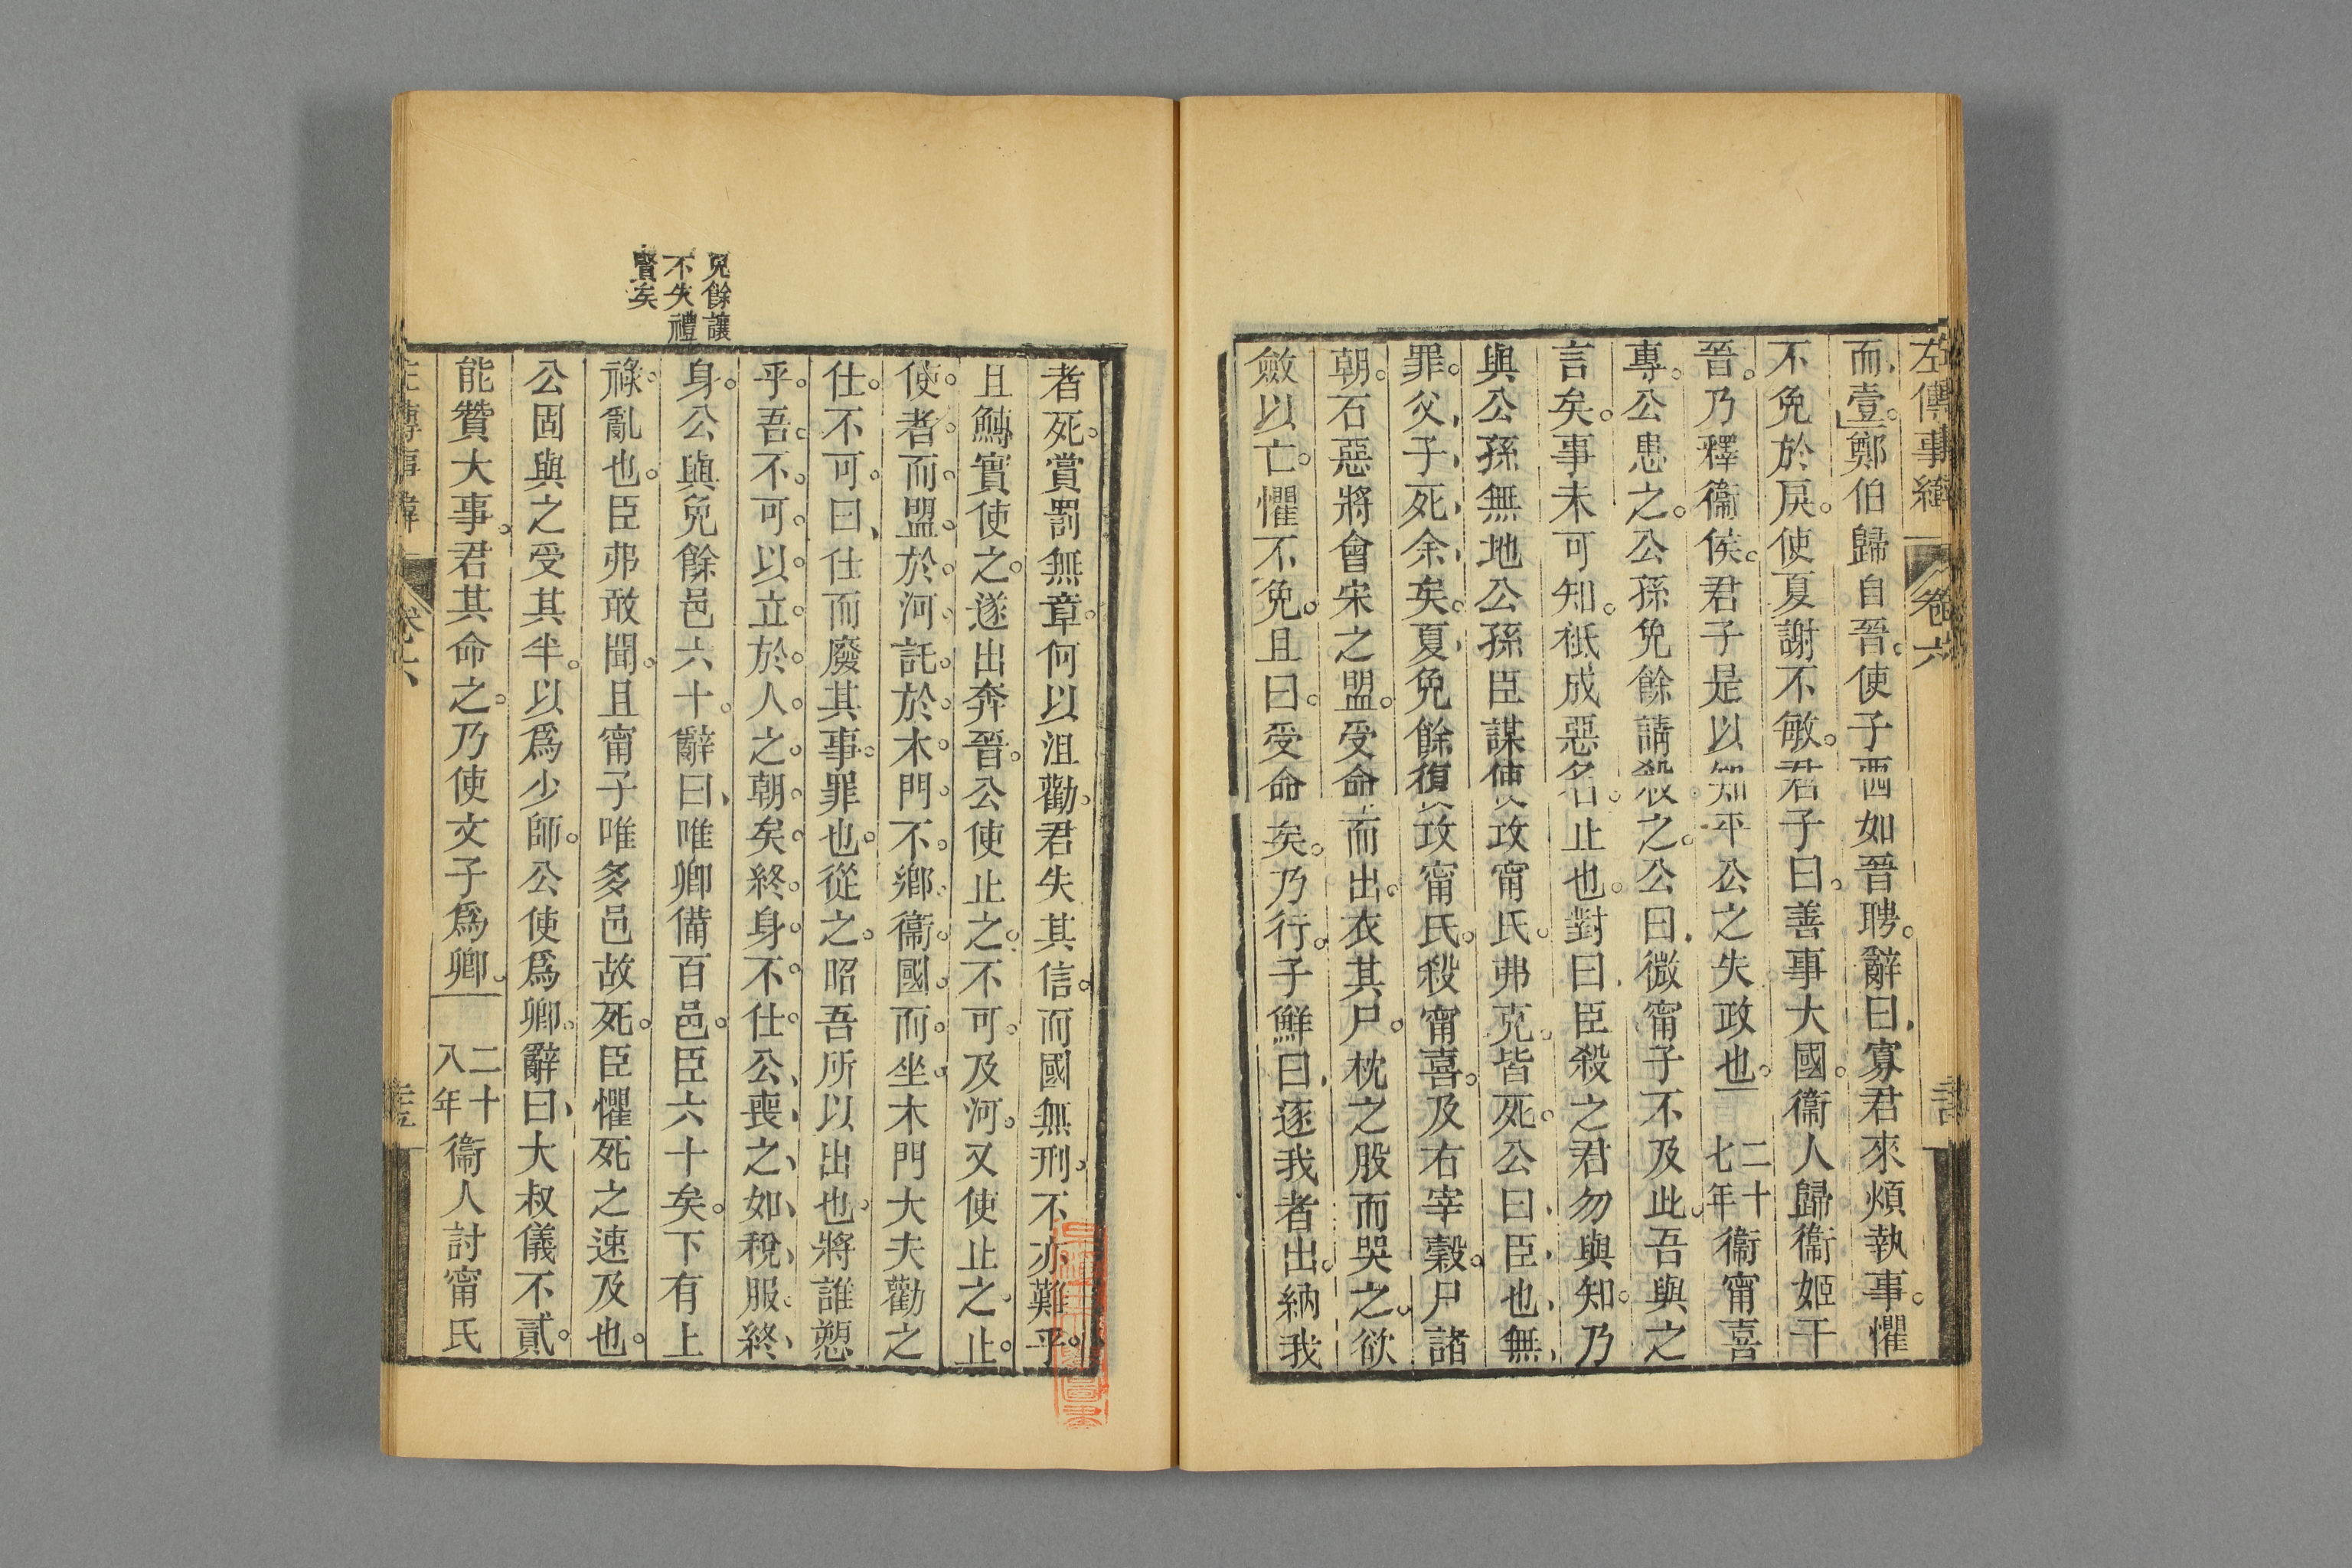 左傳事緯
卷六
而壹鄭伯歸自晉使子西如晉聘辭曰寡君來煩執事懼
不免於戾使夏謝不敏君子曰善事大國衞人歸衞姬于
晉乃釋衞侯君子是以知平公之失政也二十七年衞甯喜
專公患之公孫免餘請殺之公曰微甯子不及此吾與之
言矣事未可知祗成惡名止也對曰臣殺之君勿與知乃
與公孫無地公孫臣謀使攻甯氏弗克皆死公曰臣也無
罪父子死余矣夏免餘復攻甯氏殺甯喜及右宰穀尸諸
朝石惡將會宋之盟受命而出衣其尸枕之股而哭之欲
斂以亡懼不免且曰受命矣乃行子鮮曰逐我者出納我
者死賞罰無章何以沮勸君失其信而國無刑不亦難乎
且鱄實使之遂出奔晉公使止之不可及河又使止之止
使者而盟於河託於木門不鄉衞國而坐木門大夫勸之
仕不可曰仕而廢其事罪也從之昭吾所以出也將誰愬
乎吾不可以立於人之朝矣終身不仕公喪之如稅服終
免餘讓
不失禮
賢矣
身公與免餘邑六十辭曰唯卿備百邑臣六十矣下有上
祿亂也臣弗敢聞且甯子唯多邑故死臣懼死之速及也
公固與之受其半以爲少師公使爲卿辭曰大叔儀不貳
能贊大事君其命之乃使文子爲卿二十八年衞人討甯氏
左傳事緯
卷六